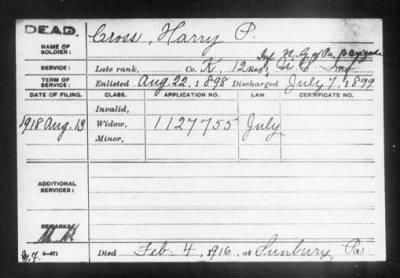 DEAD.
NAME OF SOLDIER: Cross, Harry P.
Inf. N. G. of Pa.
SERVICE: Late rank, Co. K, 12 Reg't Inf
TERM OF SERVICE: Enlisted Aug. 22, 1898 Discharged July 7, 1899
DATE OF FILING. CLASS. APPLICATION NO. LAW CERTIFICATE NO.
Invalid,
1918 Aug. 13 Widow, 1127755 July
Minor,
ADDITIONAL SERVICES:
REMARKS:
Died Feb. 4, 1916, at Sunbury, Pa